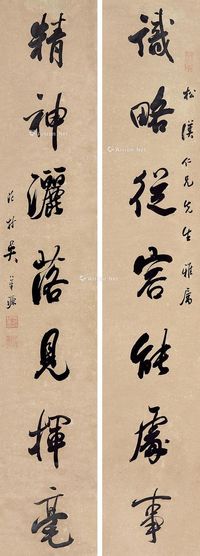 松溪仁兄先生雅属
識略從容能處事
精神灑落見揮毫